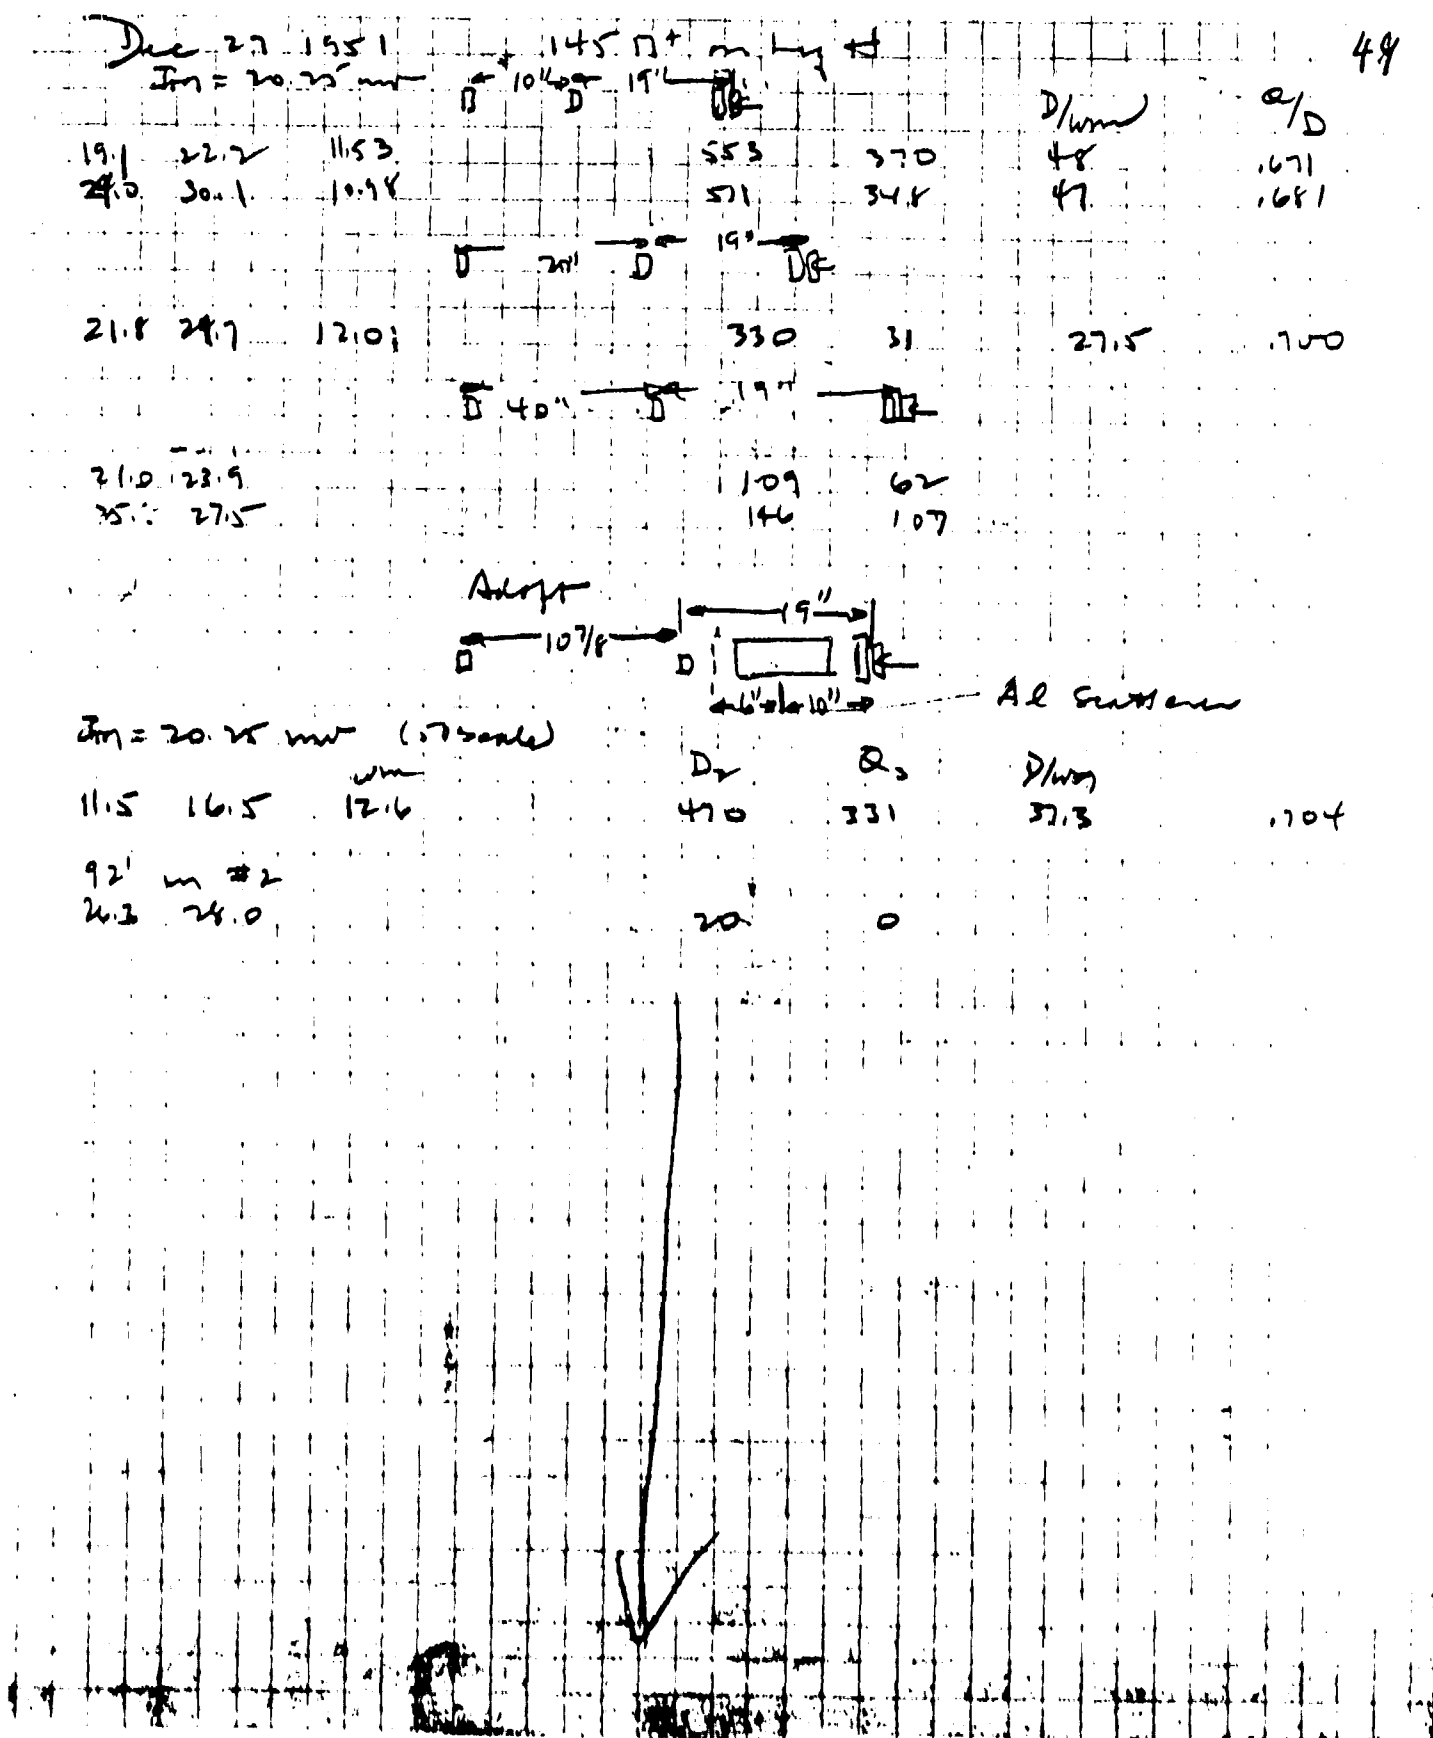 Dec 27 1951 145 π+ in Liq H 49
Im = 20.25 mv 10" 19"
D/wm Q/D
19.1 22.2 11.53 553 370 48 .671
24.0 30.1 10.98 511 348 47 .681
D D 19"
21.8 24.7 12.01 330 31 27.5 .700
D 40" D 19"
21.0 23.9 109 62
27.5 146 107
Adopt
19"
10 7/8
D
6" 10" Al Scatterer
Im = 20.25 mv
wm D2 Q3 D/wm
11.5 16.5 12.6 470 331 37.3 .704
92' in #2
26.3 28.0 20 0